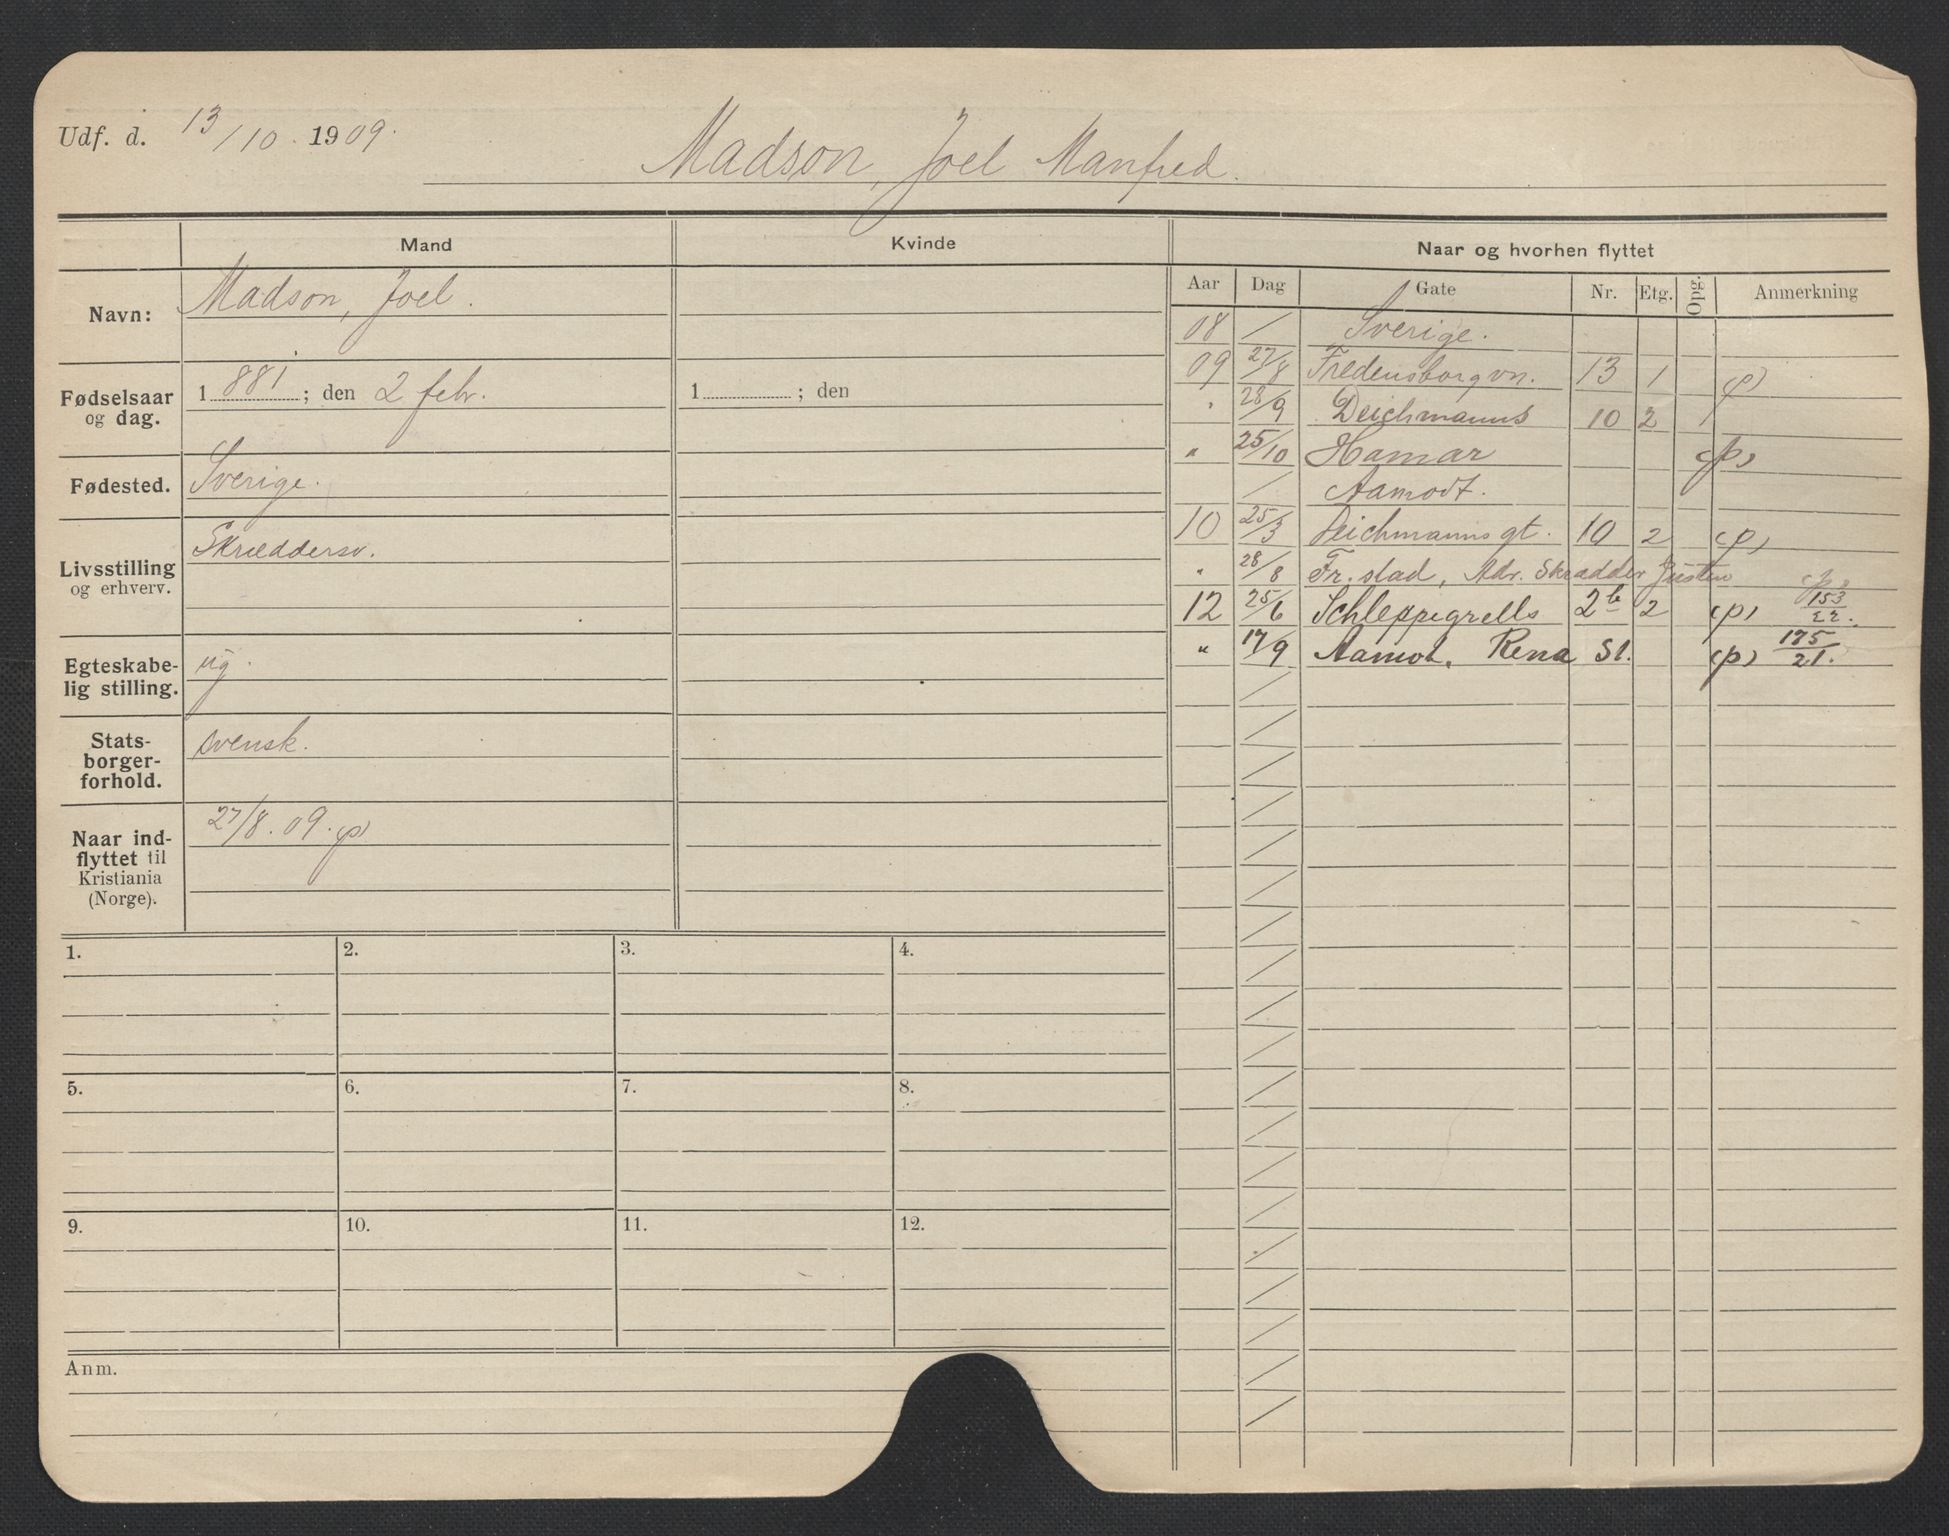 Udf. d. 13/10. 1909.
Madson, Joel Manfred.
Mand
Kvinde
Navn: Madson, Joel.
Fødselsaar og dag. 1 881 ; den 2 febr. 1 ; den
Fødested. Sverige.
Livsstilling og erhverv. Skræddersv.
Egteskabe-
lig stilling. ug.
Stats-
borger-
forhold. svensk.
Naar ind-
flyttet til
Kristiania
(Norge). 27/8. 09. (p)
1. 2. 3. 4.
5. 6. 7. 8.
9. 10. 11. 12.
Anm.
Naar og hvorhen flyttet
Aar Dag Gate Nr. Etg. Opg. Anmerkning
08 / Sverige.
09 27/8 Fredensborgvn. 13 1 (p)
" 28/9 Deichmanns 10 2 1
" 25/10 Hamar (p)
/ Aamodt.
10 25/3 Deichmanns gt. 10 2 (p)
" 28/8 Fr. stad, Adr. Skrædder (p)
12 25/6 Schleppegrells 2b 2 (p) 153/22.
" 17/9 Aamot, Rena St. (p) 175/21.